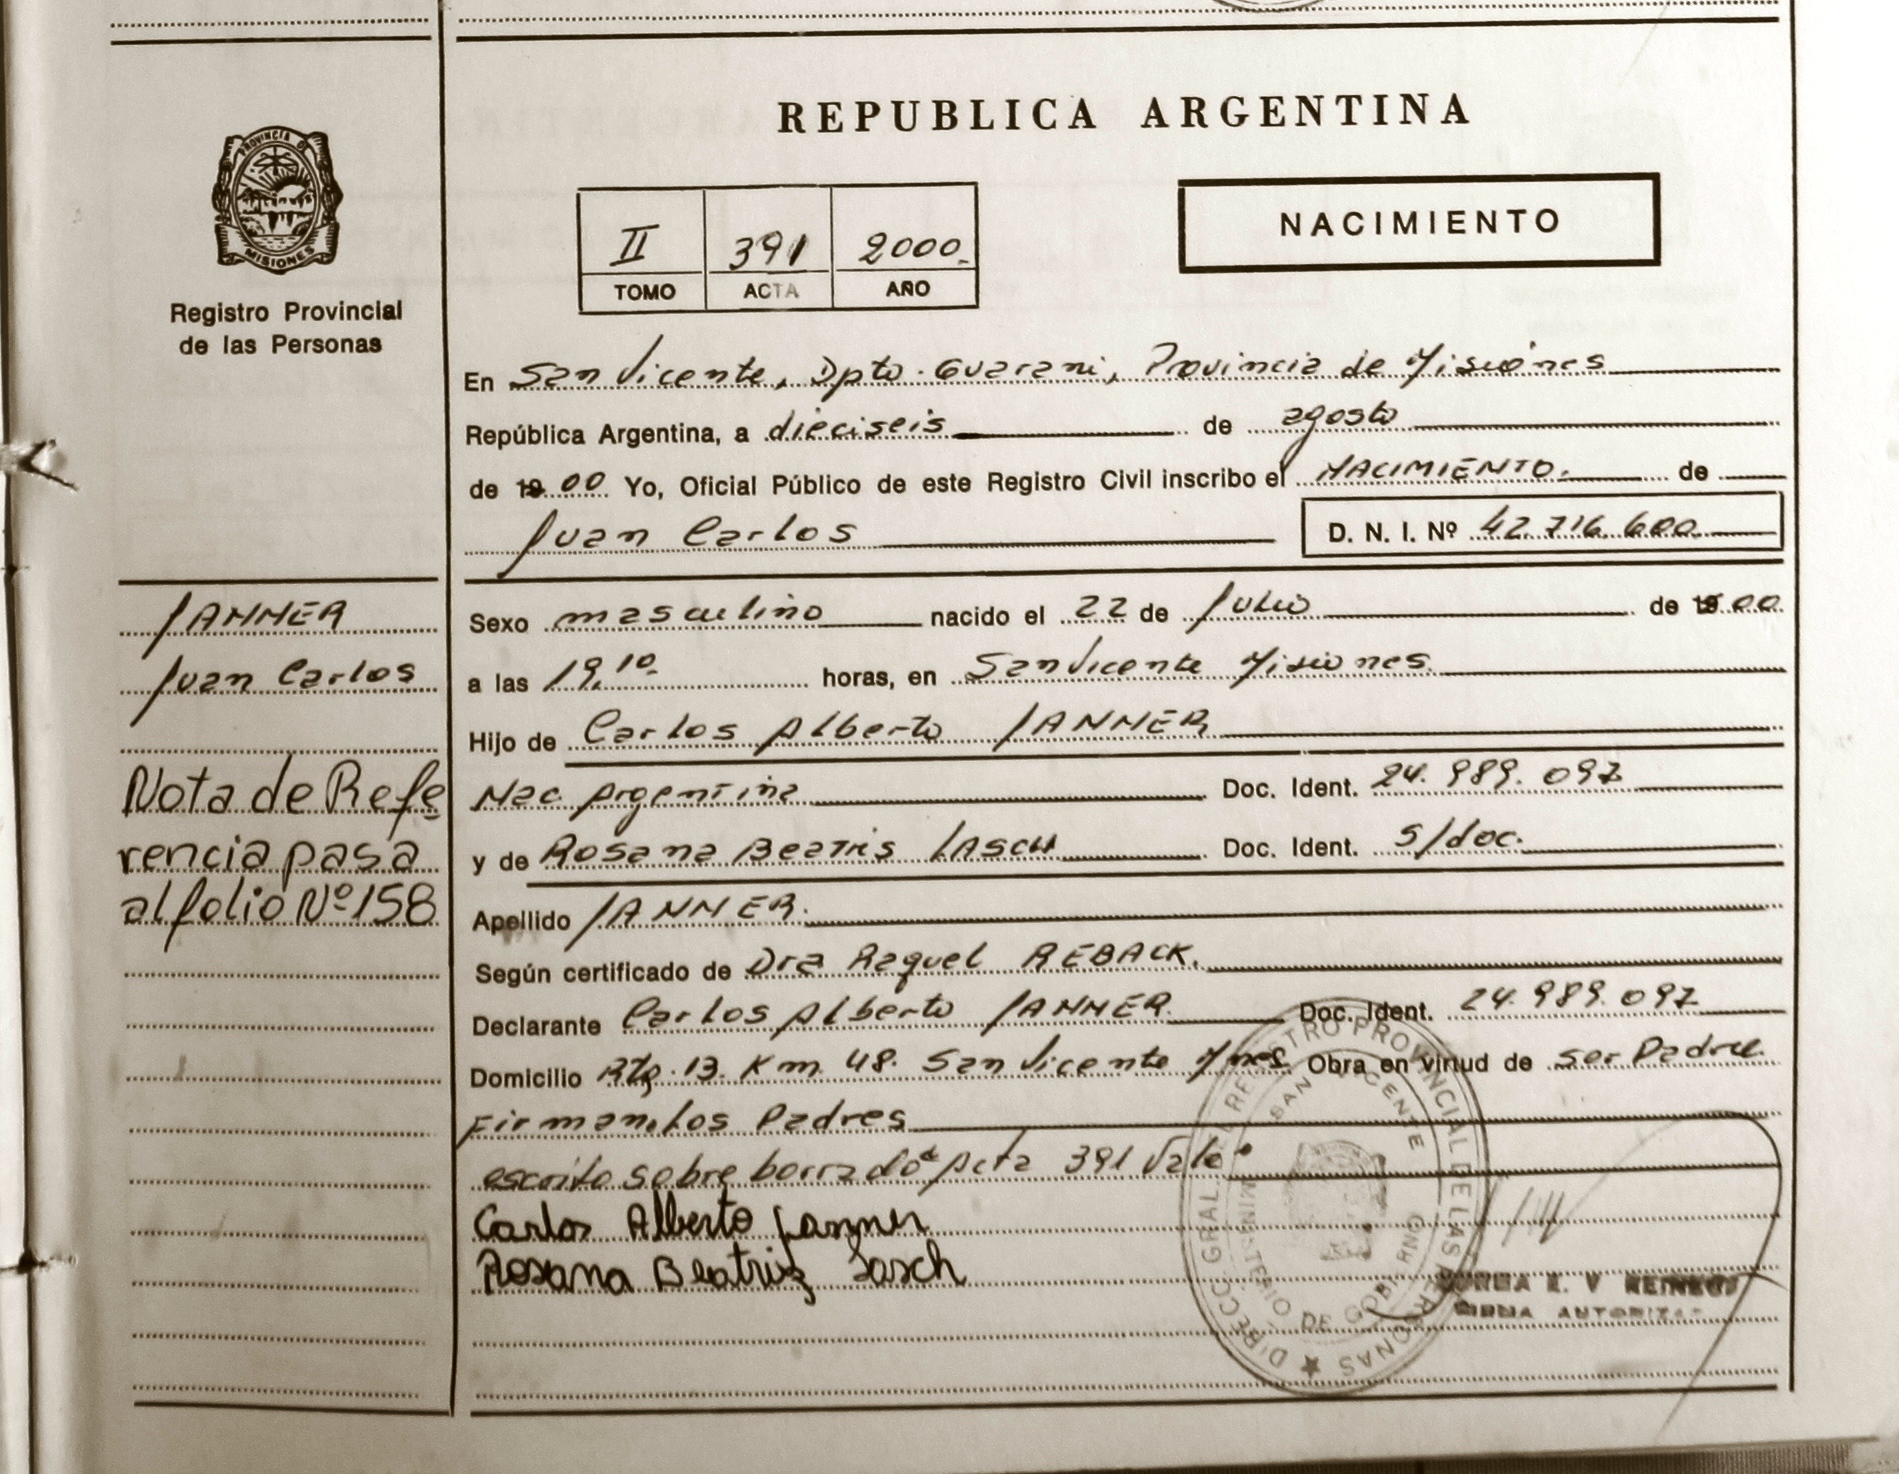 PROVINCIA DE
MISIONES
Registro Provincial
de las Personas
REPUBLICA ARGENTINA
II 391 2000
TOMO ACTA AÑO
NACIMIENTO
En San Vicente, Dpto. Guarani, Provincia de Misiones
República Argentina, a dieciseis de agosto
de 19 00 Yo, Oficial Público de este Registro Civil inscribo el NACIMIENTO. de
Juan Carlos D. N. I. Nº 42.716.600
JANNER
Juan Carlos
Nota de Refe
rencia pasa
al folio Nº 158
Sexo masculino nacido el 22 de Julio de 19 00
a las 19,10 horas, en San Vicente Misiones
Hijo de Carlos Alberto JANNER
Nac Argentina Doc. Ident. 24.989.097
y de Rosana Beatris LASCH Doc. Ident. S/doc.
Apellido JANNER.
Según certificado de Dra Raquel REBACK.
Declarante Carlos Alberto JANNER Doc. Ident. 24.989.097
Domicilio Rta. 13. Km 48. San Vicente Mnes. Obra en virtud de ser Padre
Firman los Padres
escrito sobre borrado Acta 391 Vale
Carlos Alberto Janner
Rosana Beatriz Lasch
DIRECC. GRAL. DEL REGISTRO PROVINCIAL DE LAS PERSONAS
SAN VICENTE
MINISTERIO DE GOBIERNO
NORMA E. V
FIRMA AUTORIZADA